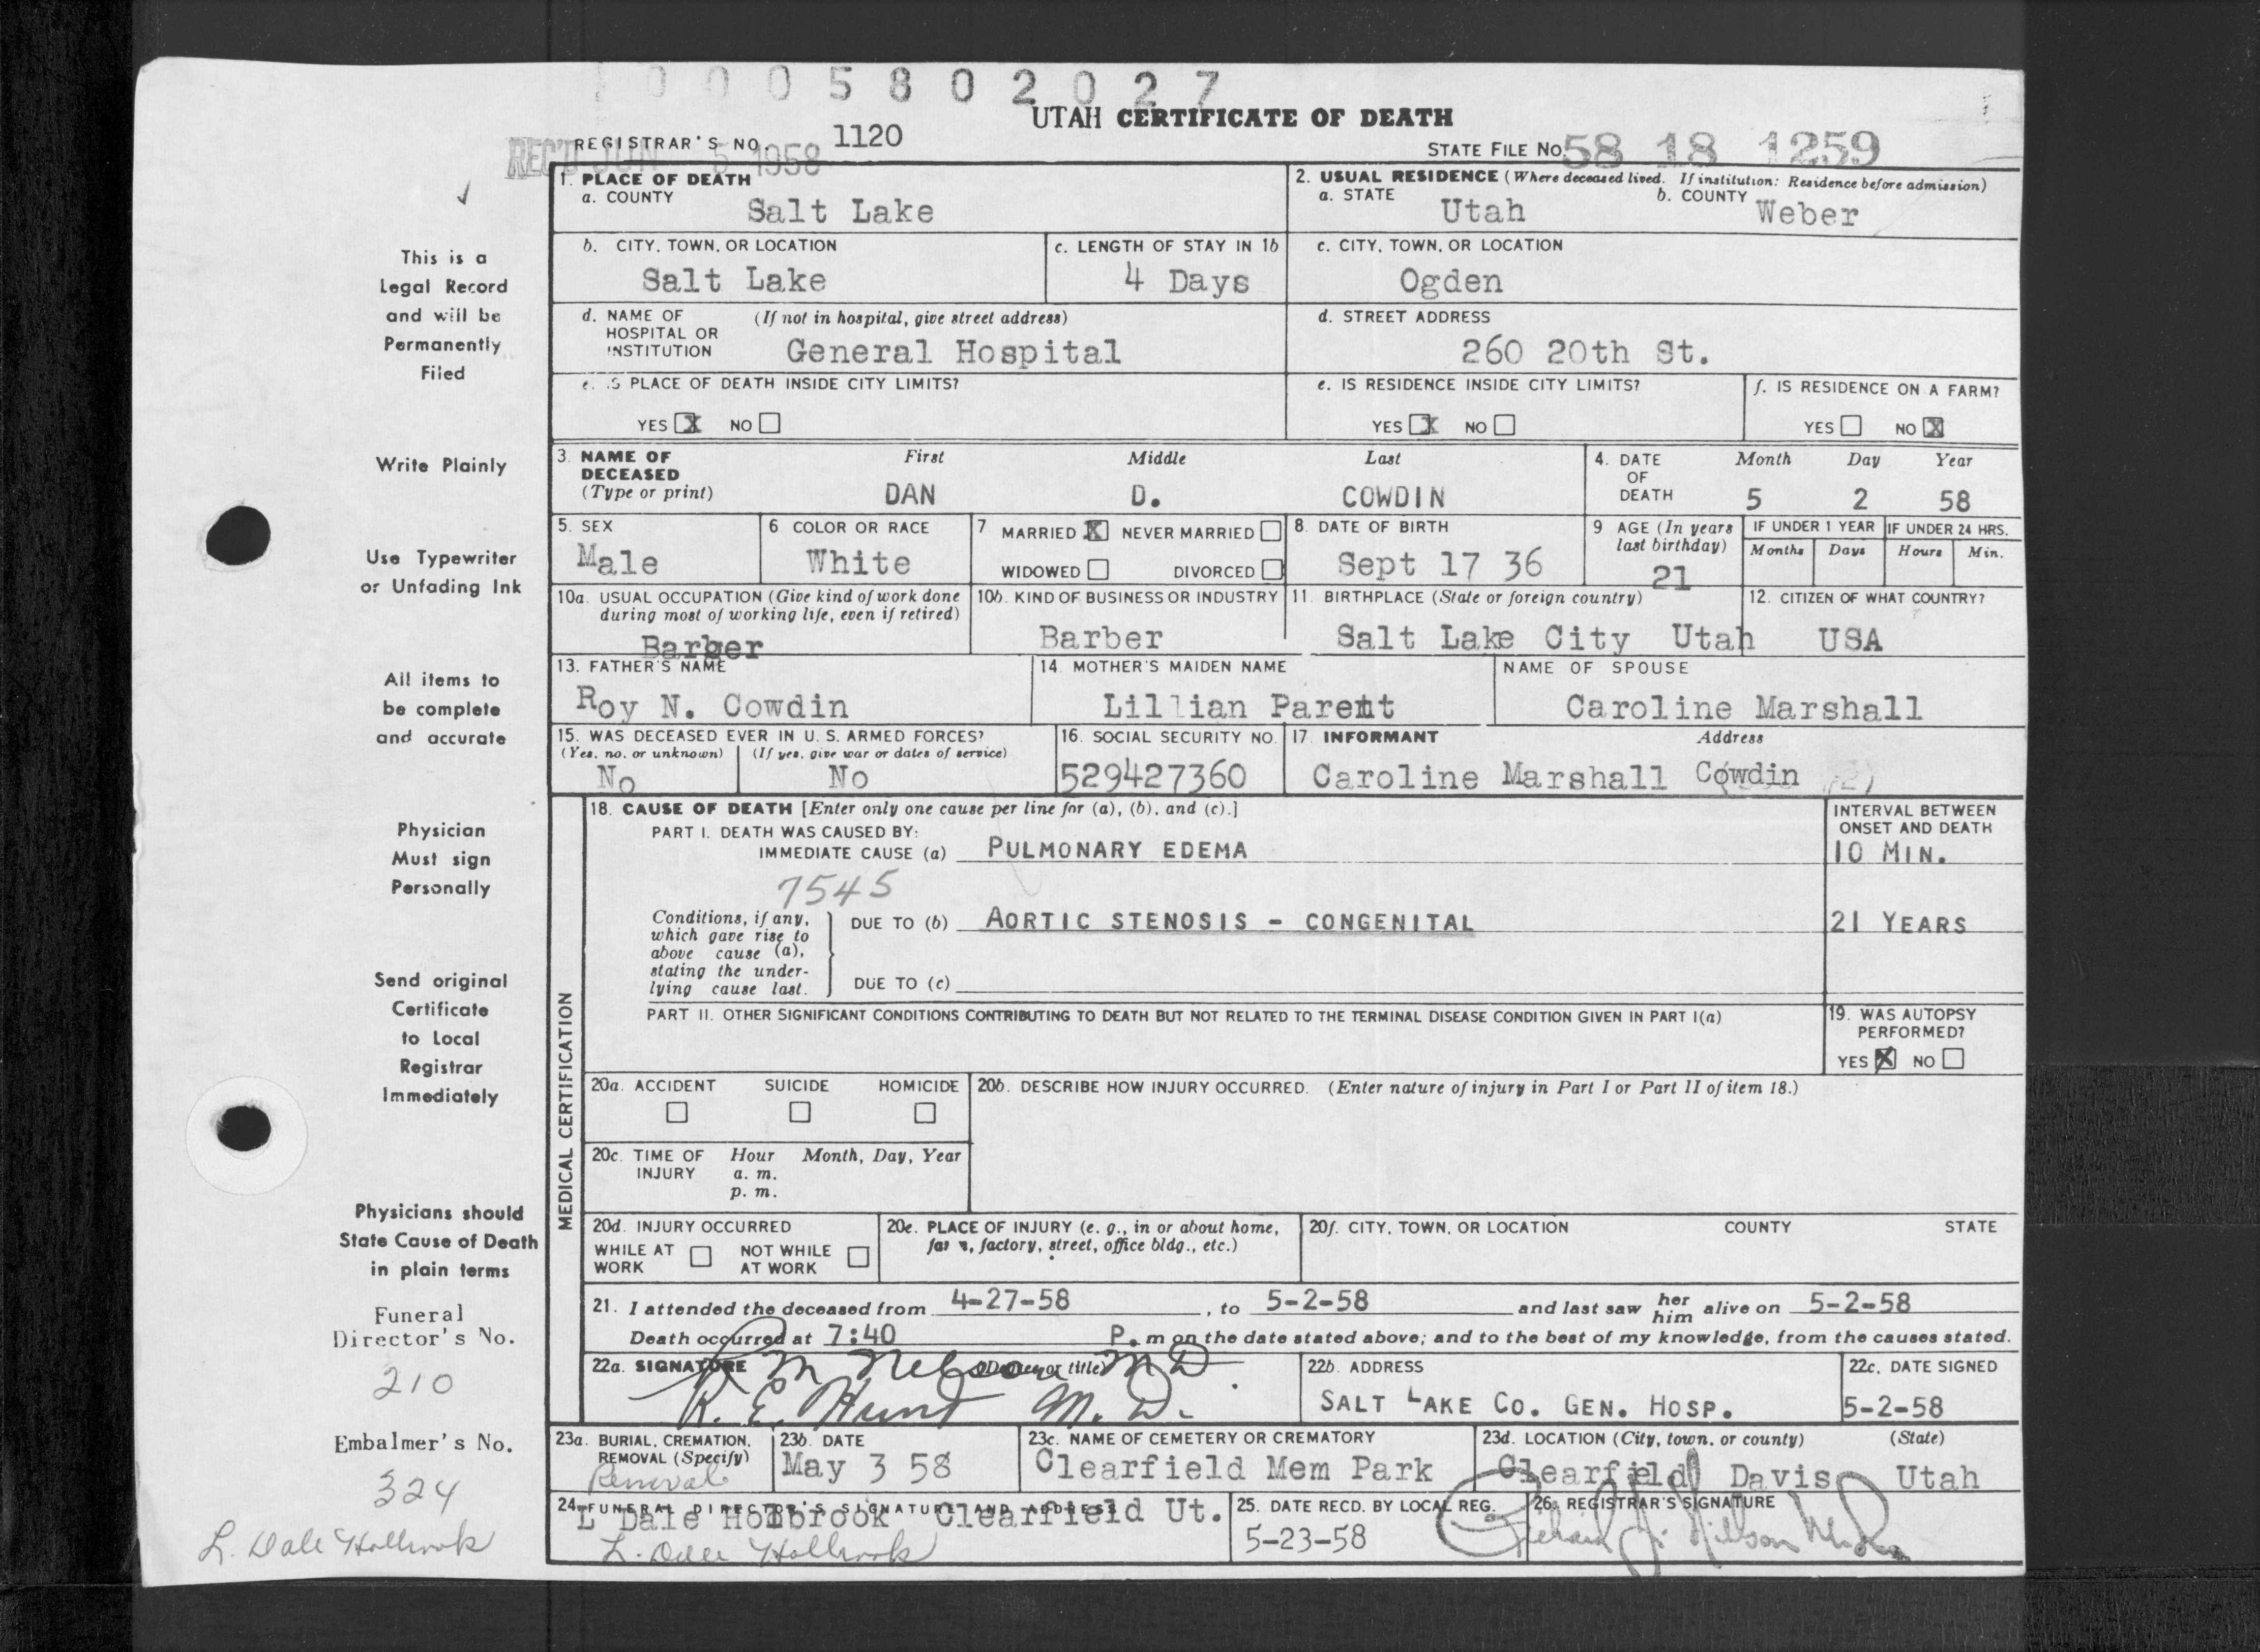 0005802027
UTAH CERTIFICATE OF DEATH
REGISTRAR'S NO. 1120
REC'D JUN 5 1958
STATE FILE NO. 58 18 1259
This is a
Legal Record
and will be
Permanently
Filed
Write Plainly
Use Typewriter
or Unfading Ink
All items to
be complete
and accurate
Physician
Must sign
Personally
Send original
Certificate
to Local
Registrar
Immediately
Physicians should
State Cause of Death
in plain terms
Funeral
Director's No.
210
Embalmer's No.
324
L. Dale Holbrook
1. PLACE OF DEATH
a. COUNTY Salt Lake
2. USUAL RESIDENCE (Where deceased lived. If institution: Residence before admission)
a. STATE Utah b. COUNTY Weber
b. CITY, TOWN, OR LOCATION Salt Lake
c. LENGTH OF STAY IN 1b 4 Days
c. CITY, TOWN, OR LOCATION Ogden
d. NAME OF HOSPITAL OR INSTITUTION (If not in hospital, give street address) General Hospital
d. STREET ADDRESS 260 20th St.
e. IS PLACE OF DEATH INSIDE CITY LIMITS?
YES X NO
e. IS RESIDENCE INSIDE CITY LIMITS?
YES X NO
f. IS RESIDENCE ON A FARM?
YES NO X
3. NAME OF DECEASED (Type or print) First Middle Last
DAN D. COWDIN
4. DATE OF DEATH Month Day Year
5 2 58
5. SEX Male
6 COLOR OR RACE White
7 MARRIED X NEVER MARRIED
WIDOWED DIVORCED
8. DATE OF BIRTH Sept 17 36
9 AGE (In years last birthday) 21
IF UNDER 1 YEAR Months Days
IF UNDER 24 HRS. Hours Min.
10a. USUAL OCCUPATION (Give kind of work done during most of working life, even if retired) Barber
10b. KIND OF BUSINESS OR INDUSTRY Barber
11. BIRTHPLACE (State or foreign country) Salt Lake City Utah
12. CITIZEN OF WHAT COUNTRY? USA
13. FATHER'S NAME Roy N. Cowdin
14. MOTHER'S MAIDEN NAME Lillian Parent
NAME OF SPOUSE Caroline Marshall
15. WAS DECEASED EVER IN U. S. ARMED FORCES?
(Yes, no, or unknown) No (If yes, give war or dates of service) No
16. SOCIAL SECURITY NO. 529427360
17. INFORMANT Address
Caroline Marshall Cowdin
MEDICAL CERTIFICATION
18. CAUSE OF DEATH [Enter only one cause per line for (a), (b), and (c).]
INTERVAL BETWEEN ONSET AND DEATH
PART I. DEATH WAS CAUSED BY:
IMMEDIATE CAUSE (a) PULMONARY EDEMA 10 MIN.
7545
Conditions, if any, which gave rise to above cause (a), stating the underlying cause last.
DUE TO (b) AORTIC STENOSIS - CONGENITAL 21 YEARS
DUE TO (c)
PART II. OTHER SIGNIFICANT CONDITIONS CONTRIBUTING TO DEATH BUT NOT RELATED TO THE TERMINAL DISEASE CONDITION GIVEN IN PART I(a)
19. WAS AUTOPSY PERFORMED?
YES X NO
20a. ACCIDENT SUICIDE HOMICIDE
20b. DESCRIBE HOW INJURY OCCURRED. (Enter nature of injury in Part I or Part II of item 18.)
20c. TIME OF INJURY Hour Month, Day, Year
a. m.
p. m.
20d. INJURY OCCURRED
WHILE AT WORK NOT WHILE AT WORK
20e. PLACE OF INJURY (e. g., in or about home, farm, factory, street, office bldg., etc.)
20f. CITY, TOWN, OR LOCATION COUNTY STATE
21. I attended the deceased from 4-27-58, to 5-2-58 and last saw her him alive on 5-2-58
Death occurred at 7:40 P. m on the date stated above; and to the best of my knowledge, from the causes stated.
22a. SIGNATURE (Degree or title)
R M Nelson MD
R. E. Hunt M. D.
22b. ADDRESS SALT LAKE CO. GEN. HOSP.
22c. DATE SIGNED 5-2-58
23a. BURIAL, CREMATION, REMOVAL (Specify) Removal
23b. DATE May 3 58
23c. NAME OF CEMETERY OR CREMATORY Clearfield Mem Park
23d. LOCATION (City, town, or county) (State)
Clearfield Davis Utah
24. FUNERAL DIRECTOR'S SIGNATURE AND ADDRESS
L Dale Holbrook Clearfield Ut.
L. Dale Holbrook
25. DATE RECD. BY LOCAL REG. 5-23-58
26. REGISTRAR'S SIGNATURE